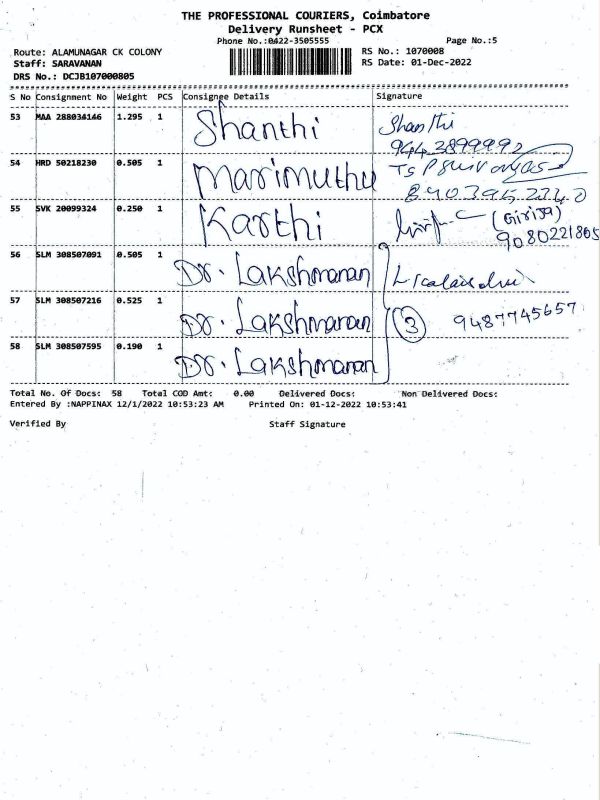 THE PROFESSIONAL COURIERS, Coimbatore
Delivery Runsheet - PCX
Phone No.:0422-3505555 Page No.:5
Route: ALAMUNAGAR CK COLONY RS No.: 1070008
Staff: SARAVANAN RS Date: 01-Dec-2022
DRS No.: DCJB107000805
S No Consignment No Weight PCS Consignee Details Signature
53 MAA 288034146 1.295 1 Shanthi Shanthi
9443899992
54 HRD 50218230 0.505 1 Marimuthu
8903952240
55 SVK 20099324 0.250 1 Karthi (Girija)
9080221805
56 SLM 308507091 0.505 1 Dr. Lakshmanan
57 SLM 308507216 0.525 1 Dr. Lakshmanan 3 9487745657
58 SLM 308507595 0.190 1 Dr. Lakshmanan
Total No. Of Docs: 58 Total COD Amt: 0.00 Delivered Docs: Non Delivered Docs:
Entered By :NAPPINAX 12/1/2022 10:53:23 AM Printed On: 01-12-2022 10:53:41
Verified By Staff Signature